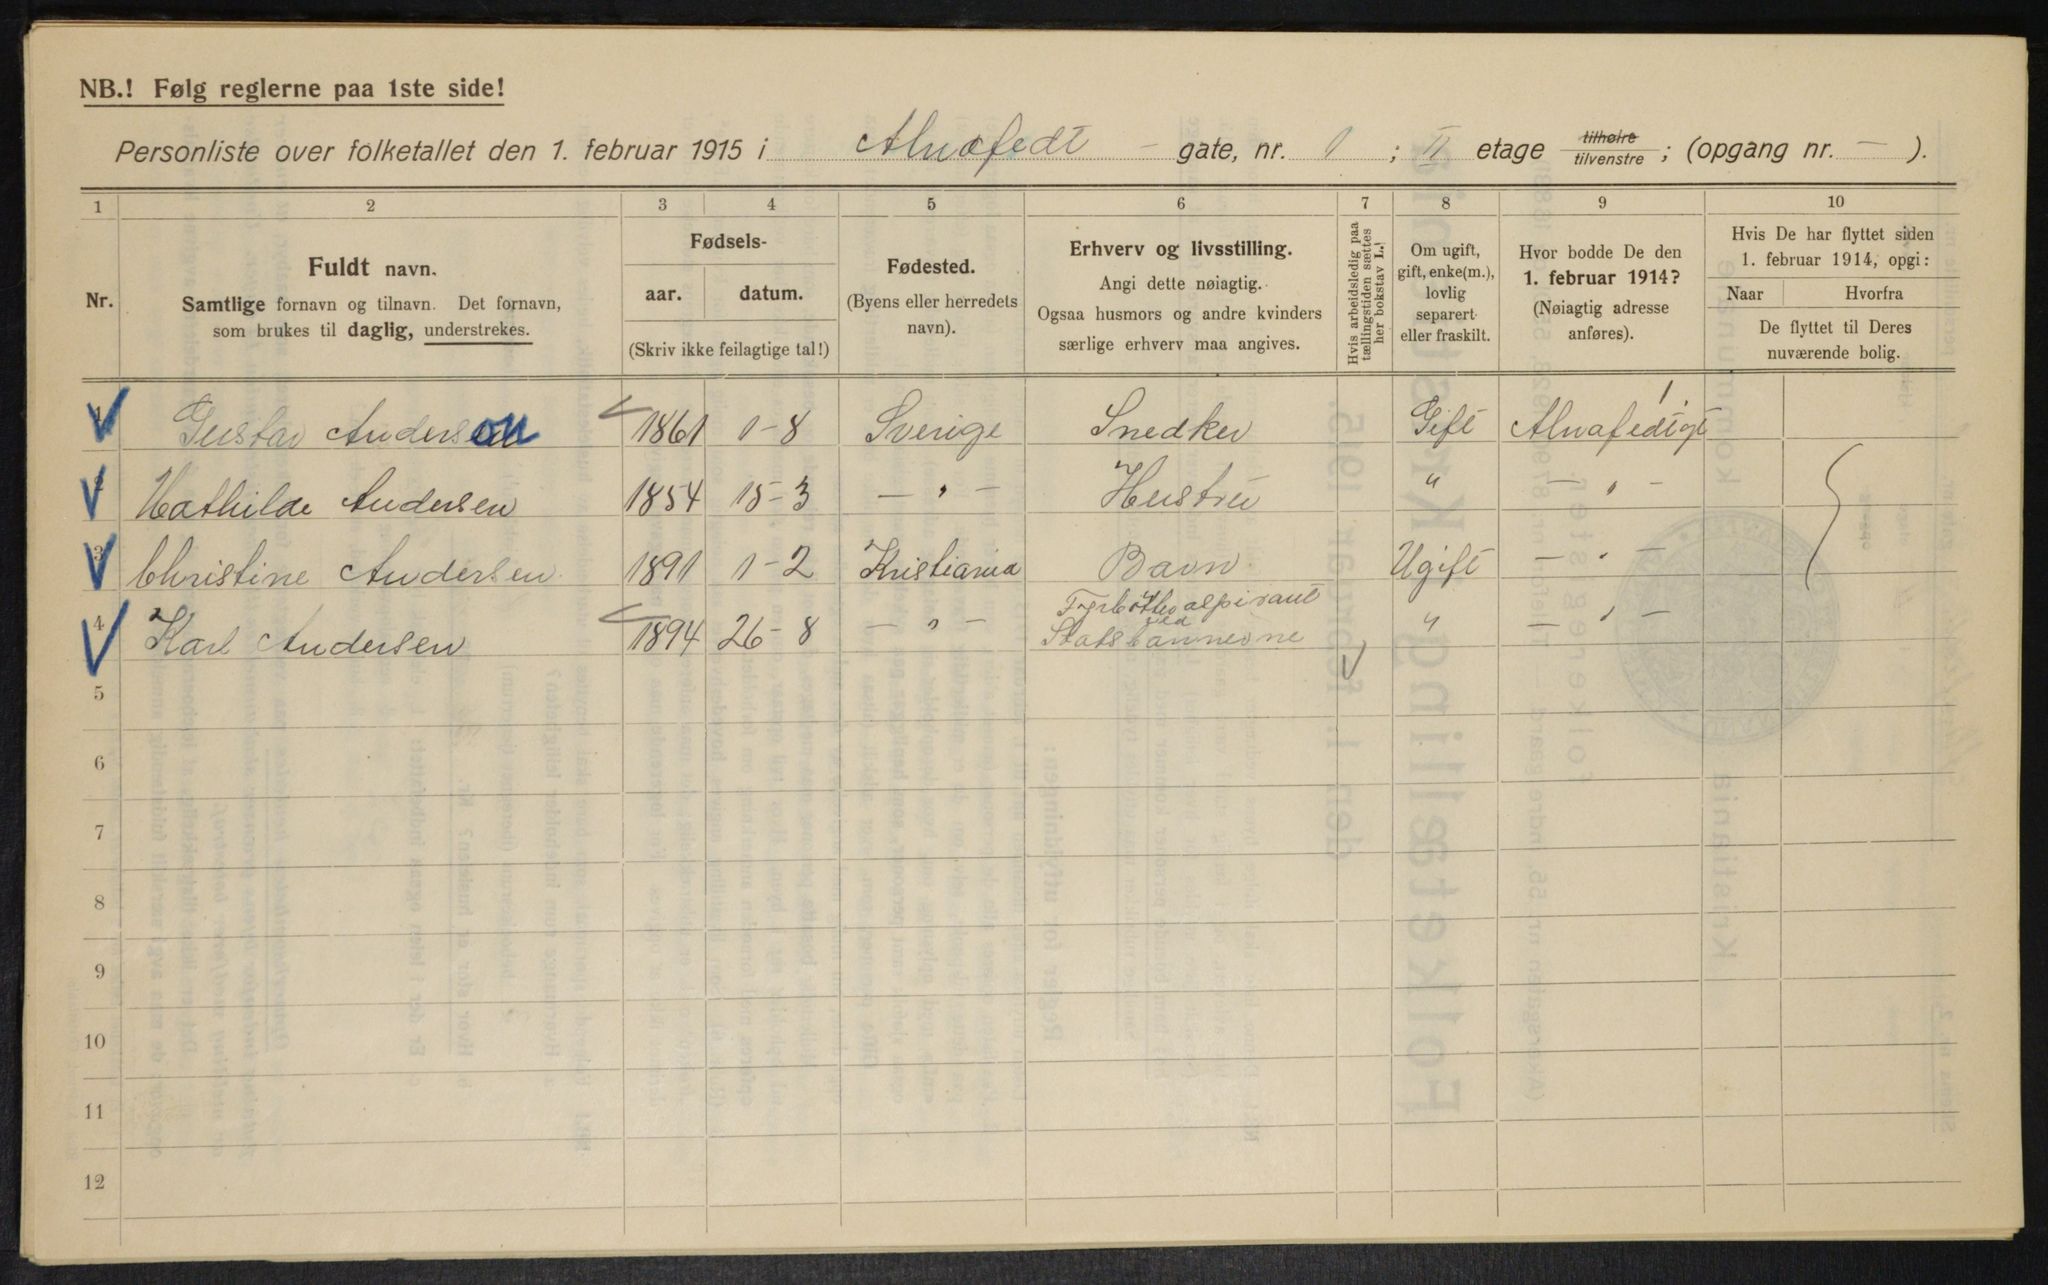 NB.! Følg reglerne paa 1ste side!
Personliste over folketallet den 1. februar 1915 i Alnafedt - gate, nr. 1 ; II etage tilhøire tilvenstre ; (opgang nr. - ).
1 2 3 4 5 6 7 8 9 10
Nr.
Fuldt navn.
Samtlige fornavn og tilnavn. Det fornavn,
som brukes til daglig, understrekes.
Fødsels-
aar. datum.
(Skriv ikke feilagtige tal!)
Fødested.
(Byens eller herredets
navn).
Erhverv og livsstilling.
Angi dette nøiagtig.
Ogsaa husmors og andre kvinders
særlige erhverv maa angives.
Hvis arbeidsledig paa
tællingstiden sættes
her bokstav L.!
Om ugift,
gift, enke(m.),
lovlig
separert
eller fraskilt.
Hvor bodde De den
1. februar 1914?
(Nøiagtig adresse
anføres).
Hvis De har flyttet siden
1. februar 1914, opgi:
Naar Hvorfra
De flyttet til Deres
nuværende bolig.
1 Gustav Anderson 1861 1-8 Sverige Snedker Gift Alnafedtgt 1
2 Mathilde Andersen 1854 15-3 - " - Hustru " - " -
3 Christine Andersen 1891 1-2 Kristiania Barn Ugift - " -
4 Karl Andersen 1894 26-8 - " - Fyrbøtteraspirant ved Statsbannerne " - " -
5
6
7
8
9
10
11
12